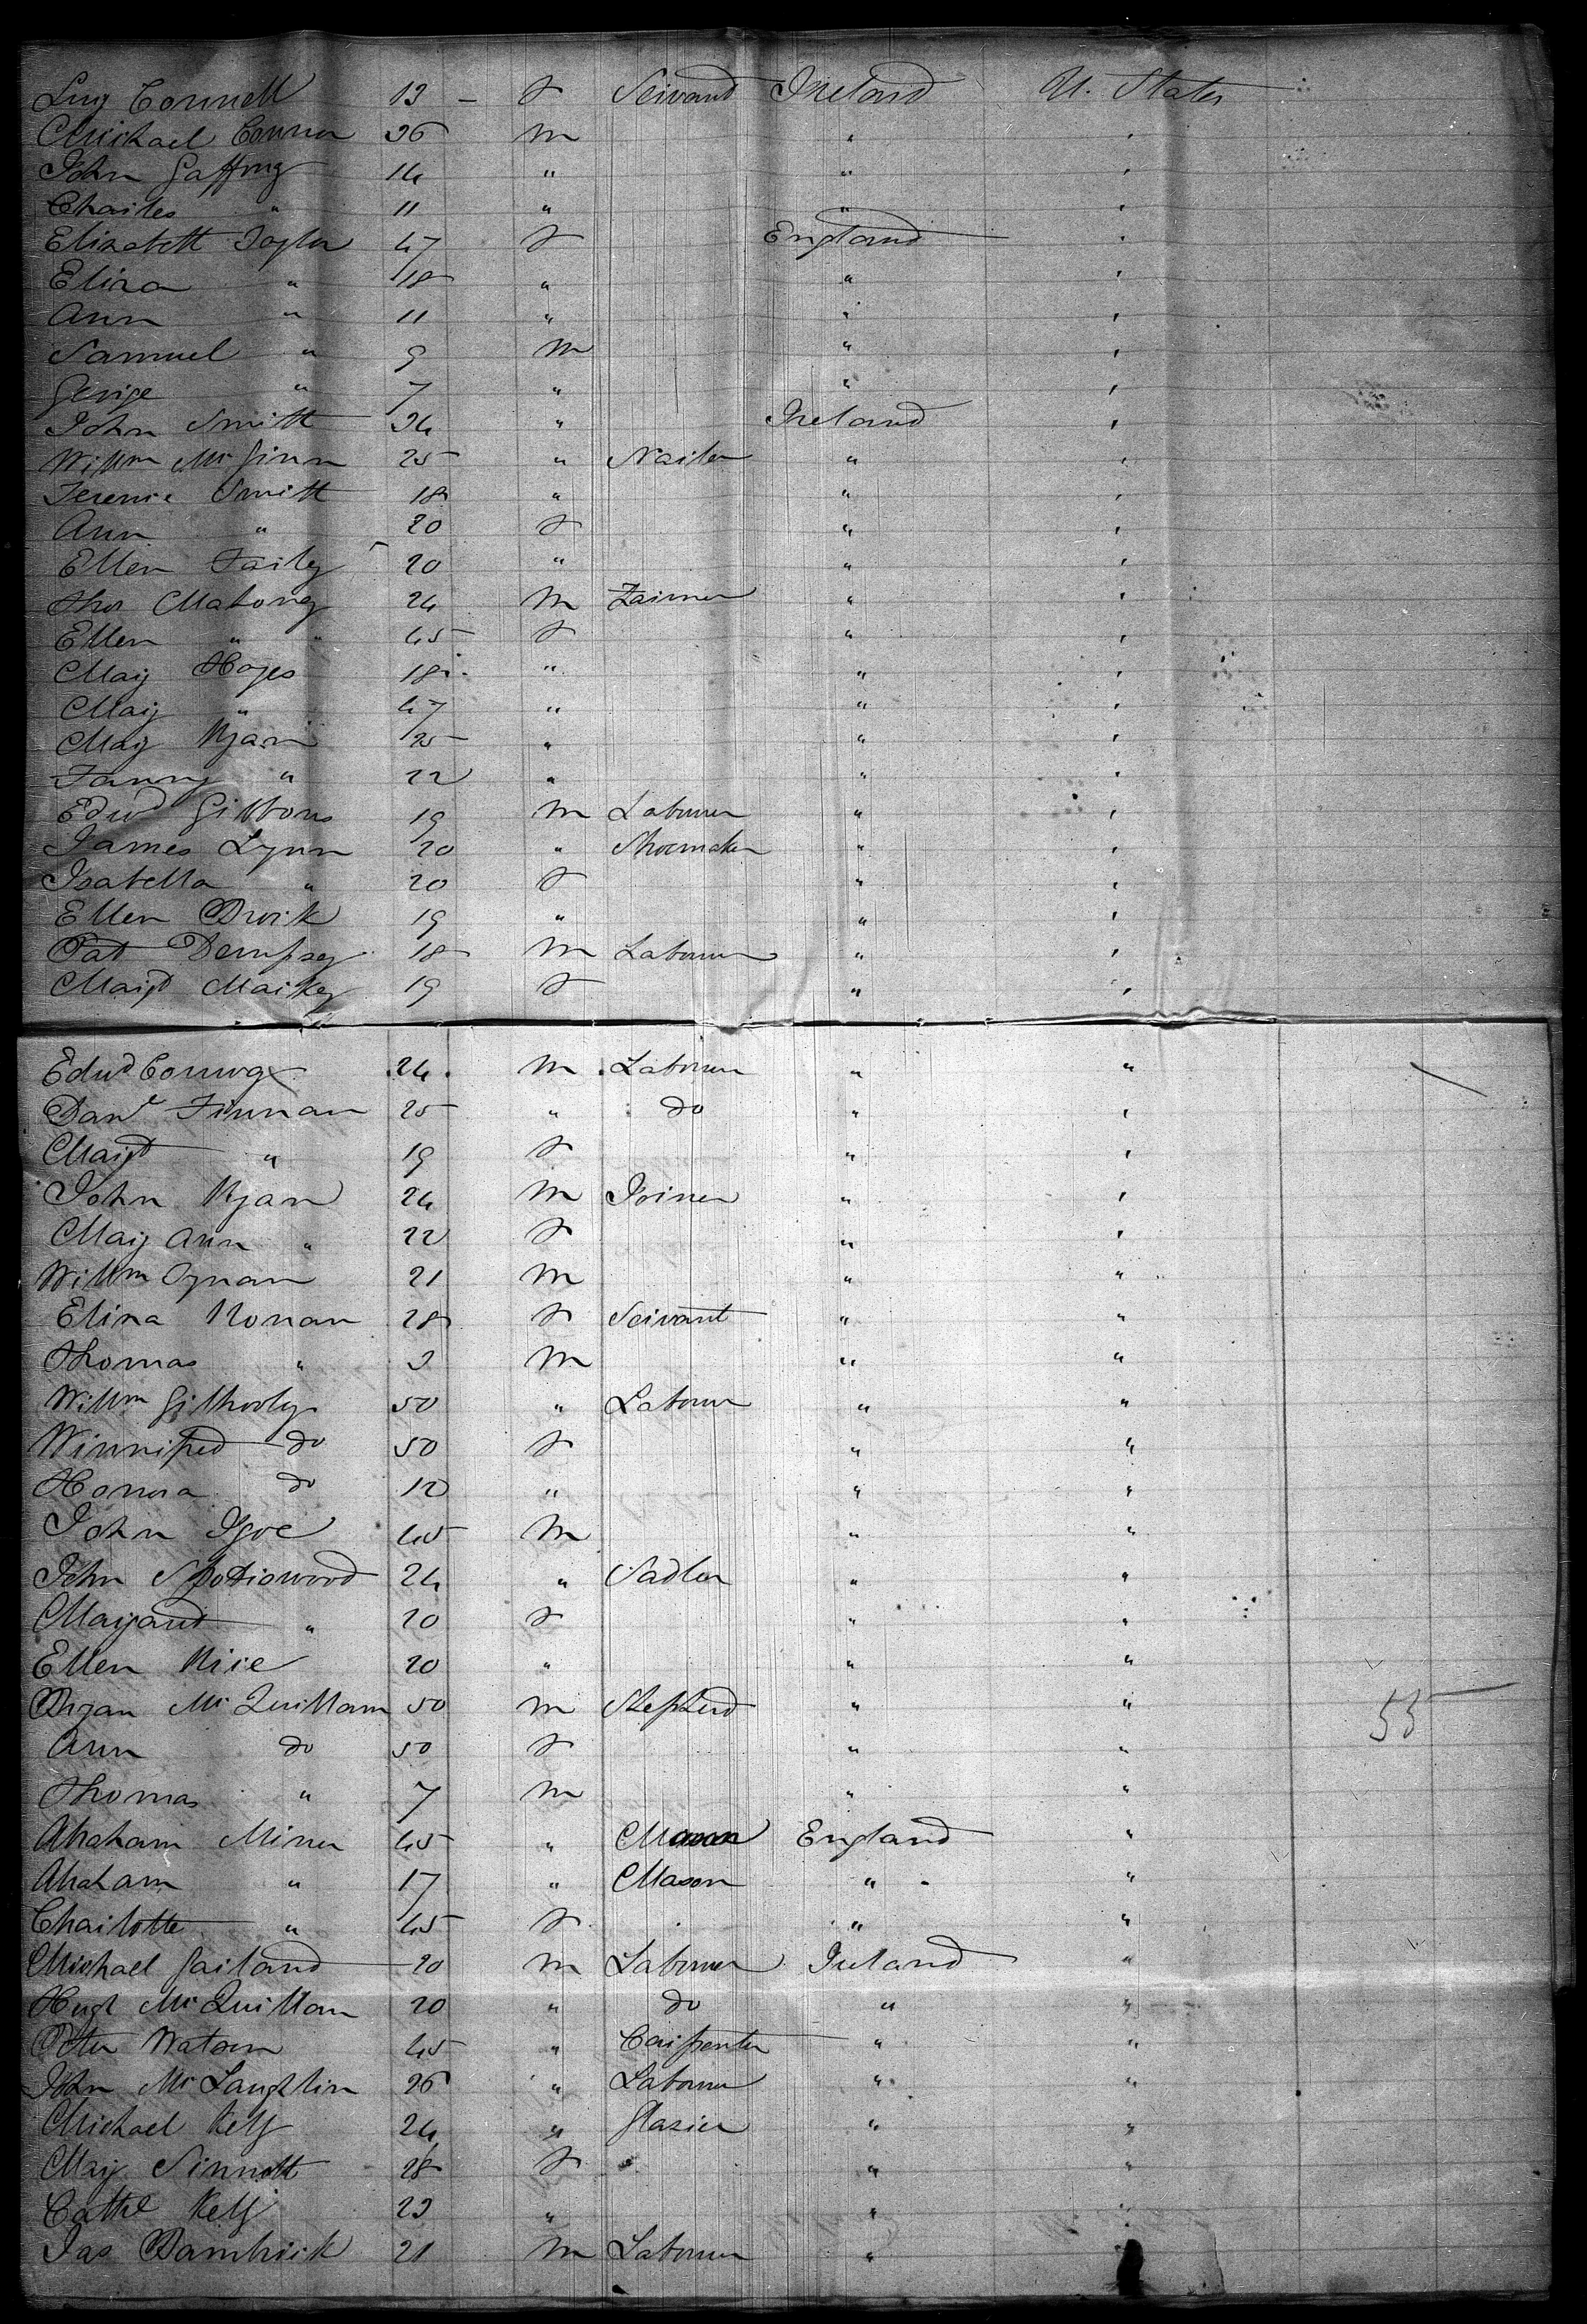 Lucy Connell 13 - F Servant Ireland U. States
Michael Connor 36 m " "
John Gaffney 14 " " "
Charles " 11 " " "
Elizabeth Taylor 47 F England "
Eliza " 18 " " "
Ann " 11 " " "
Samuel " 9 m " "
George " 7 " " "
John Smith 34 " Ireland "
Willm McGinn 25 " Nailer " "
Terence Smith 18 " " "
Ann " 20 F " "
Ellen 20 " " "
Thos Mahoney 24 m Farmer " "
Ellen " " 45 F " "
Mary Hayes 18 " " "
Mary " 47 " " "
Mary Ryan 25 " " "
Fanny " 22 " " "
Edwd Gibbons 19 m Labourer " "
James Lynn 20 " Shoemaker " "
Isabella " 20 F " "
Ellen 19 " " "
Pat Dempsey 18 m Labourer " "
Margt Markey 19 F " "
Edwd Conway 24 m Labourer " "
Danl Finnan 25 " do " "
Margt " 19 F " "
John Ryan 24 m Joiner " "
Mary Ann " 22 F " "
Willm 21 m " "
Eliza Ronan 28 F Servant " "
Thomas " 3 m " "
Willm Gilhooly 50 " Labourer " "
Winnifred do 50 F " "
Honora do 12 " " "
John Igoe 45 m " "
John Spotiswood 24 " Sadler " "
Margaret " 20 F " "
Ellen Rice 20 " " "
Bryan McQuillam 50 m Shepherd " "
55
Ann do 50 F " "
Thomas " 7 m " "
Abraham Minner 45 " Mason England "
Abraham " 17 " Mason " "
Charlotte " 45 F " "
Michael Garland 20 m Labourer Ireland "
Hugh McQuillam 20 " do " "
Peter Watson 45 " Carpenter " "
John McLaughlin 26 " Labourer " "
Michael Kelly 24 " Glazier " "
Mary Sinnott 28 F " "
Cathe Kelly 23 " " "
Jas Bambrick 21 m Labourer "